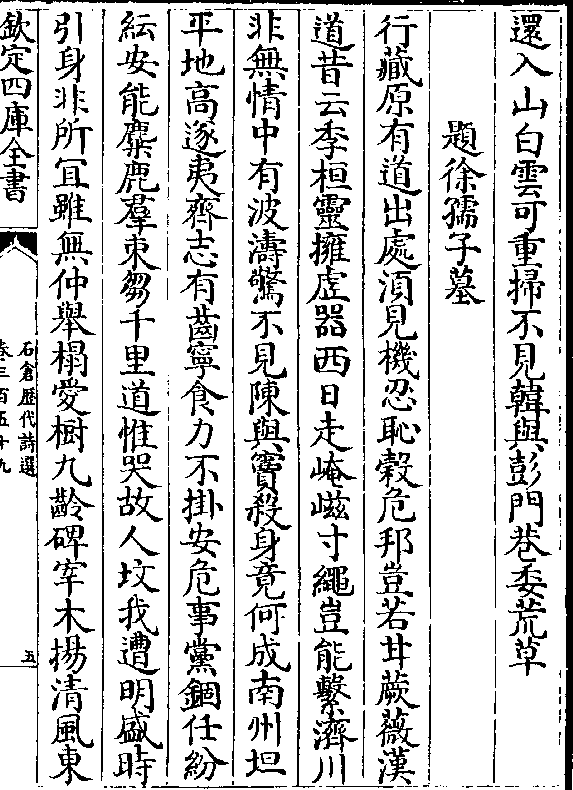 還入山白雲可重掃不見韓與彭門巷委荒草
題徐孺子墓
行藏原有道出處湏見機忍恥穀危邦豈若甘蕨薇漢
道昔云季桓靈擁虚器西日走崦嵫寸繩豈能繫濟川
非無情中有波濤驚不見陳與竇殺身竟何成南州坦
平地高遂夷齊志有菑寧食力不掛安危事黨錮任紛
紜安能麋鹿羣束芻千里道惟哭故人墳我遭明盛時
引身非所冝雖無仲舉榻愛樹九齡碑宰木揚清風東
欽定四庫全書
石倉歴代詩選
卷三百五十九
五